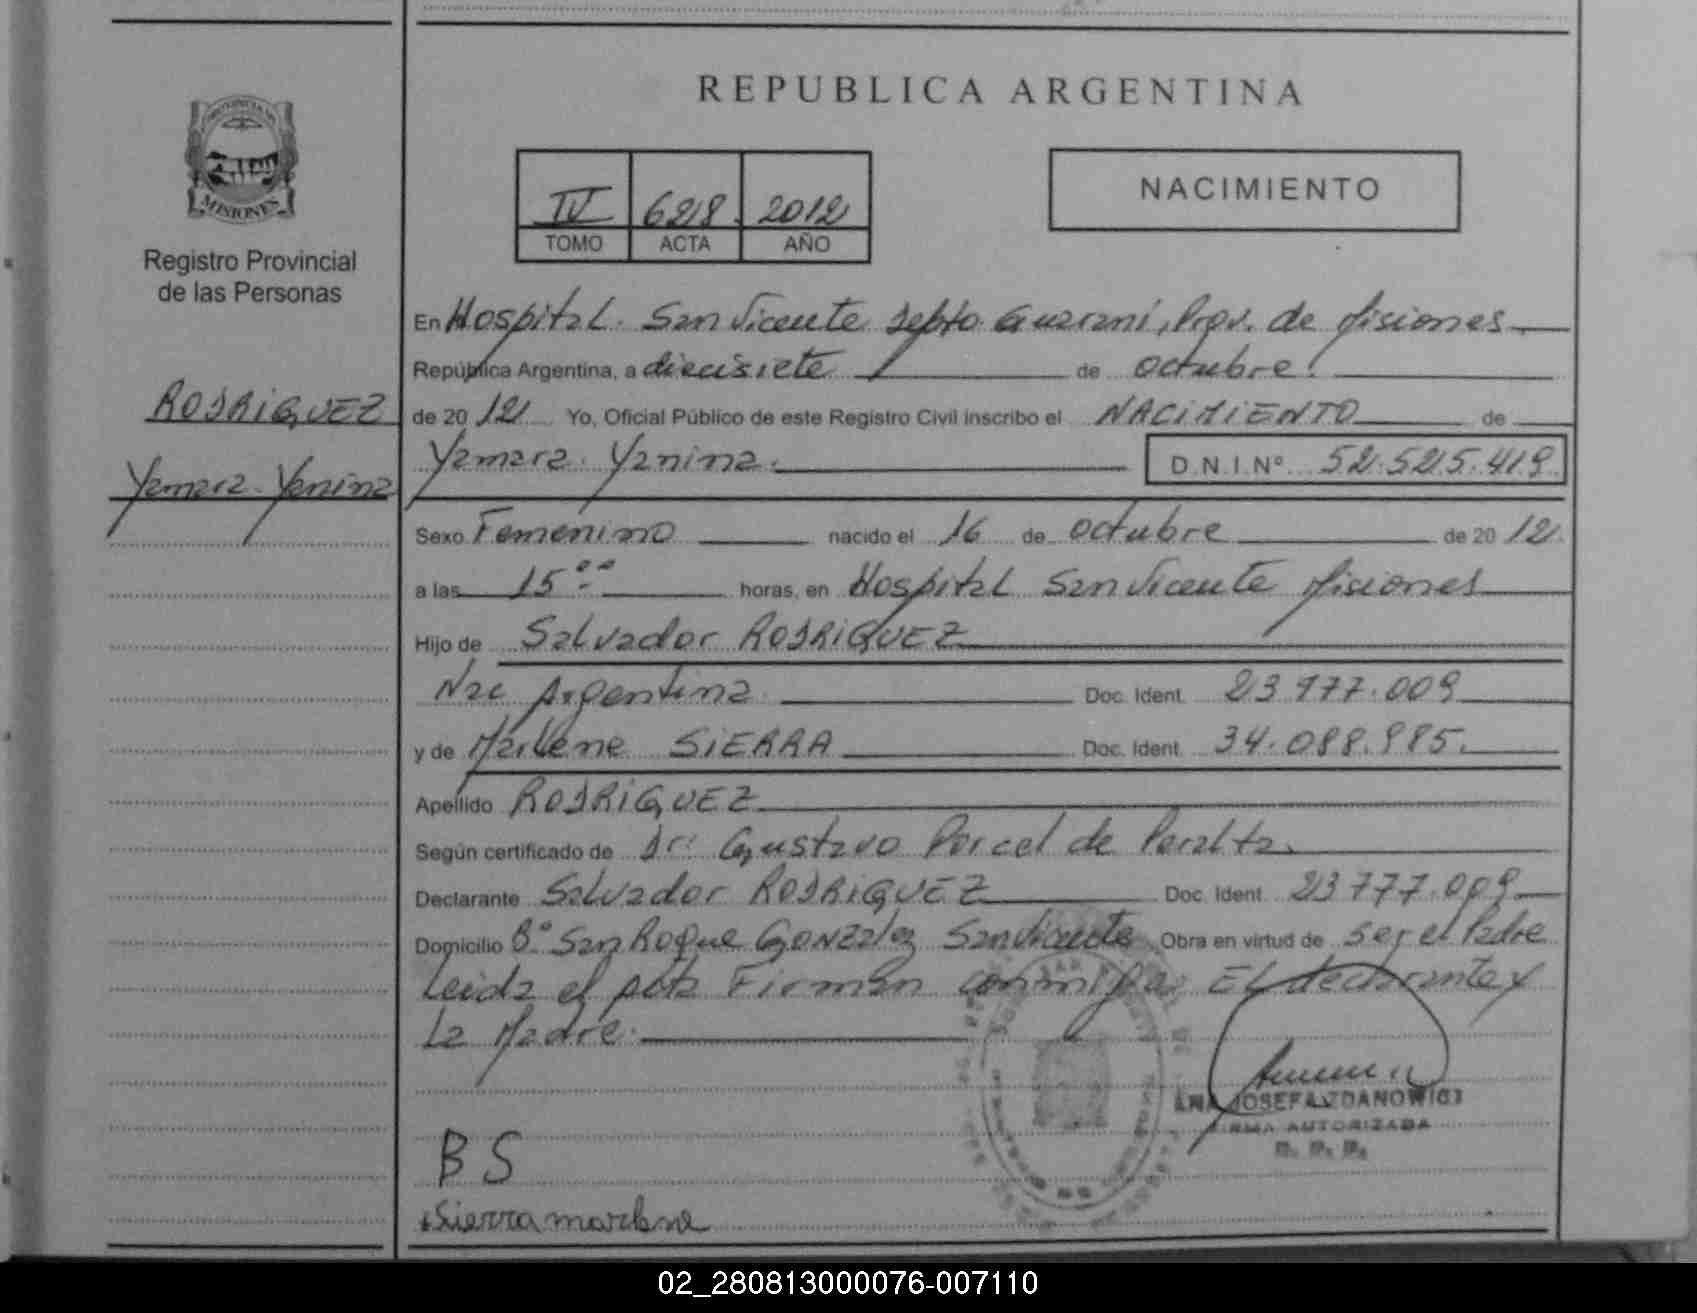 REPUBLICA ARGENTINA
PROVINCIA DE
MISIONES
Registro Provincial
de las Personas
IV 628 2012
TOMO ACTA AÑO
NACIMIENTO
RODRIGUEZ
Yamara Yanina
En Hospital San Vicente Depto Guaraní, Prov. de Misiones
República Argentina, a diecisiete de octubre
de 20 12 Yo, Oficial Público de este Registro Civil inscribo el NACIMIENTO de
Yamara Yanina. D.N.I.Nº 52.525.419
Sexo Femenino nacido el 16 de octubre de 20 12
a las 15 horas, en Hospital San Vicente Misiones
Hijo de Salvador RODRIGUEZ
Nac Argentina Doc. Ident. 23.977.009
y de Marlene SIERRA Doc. Ident. 34.088.985.
Apellido RODRIGUEZ
Según certificado de Dr: Gustavo Porcel de Peralta.
Declarante Salvador RODRIGUEZ Doc. Ident. 23 777.009
Domicilio Bº San Roque Gonzalez San Vicente Obra en virtud de ser el Padre
Leida el acta Firman conmigo: El declarante y
La Madre.
ANA JOSEFA ZDANOWICZ
FIRMA AUTORIZADA
R. P. P.
B S
Sierra marlene
02_280813000076-007110